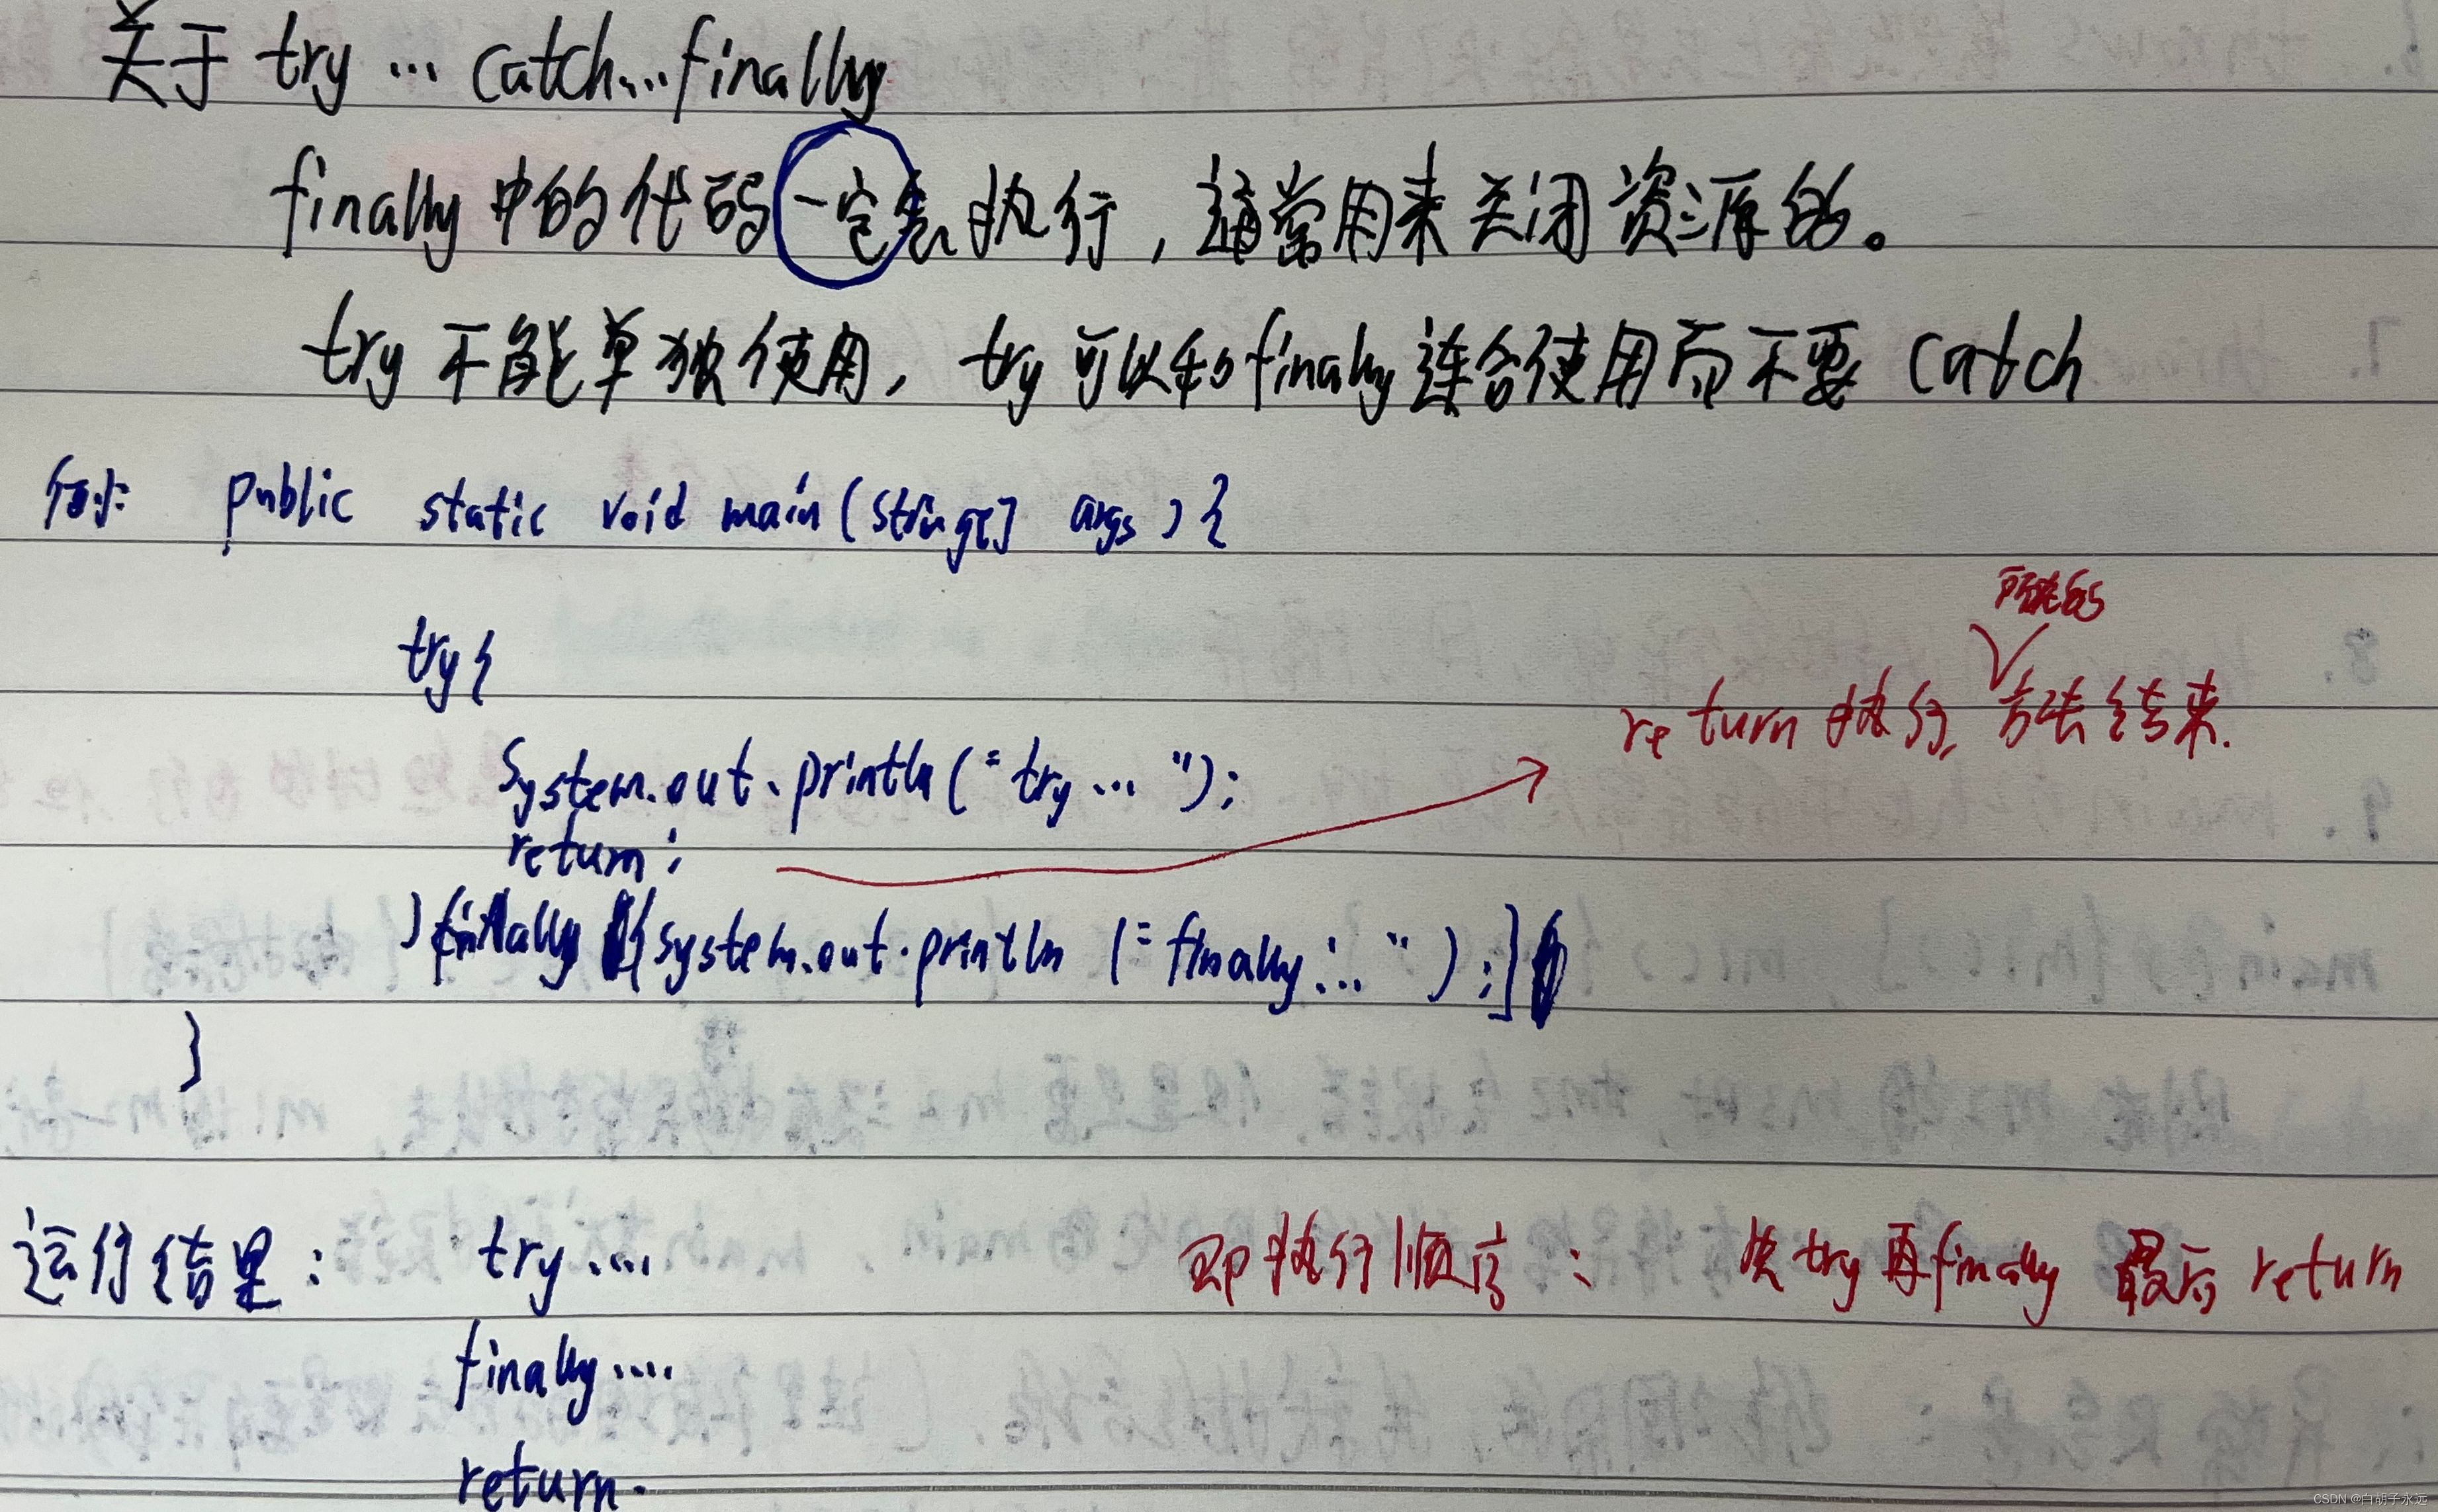 关于 try ... catch...finally
finally 中的代码一定会执行，通常用来关闭资源的。
try 不能单独使用，try 可以和finally 连合使用而不要 catch
例: public static void main(String[] args){
try{
所在的
return 执行, 方法结束.
System.out.println("try ... ");
return;
}finally {system.out.println ("finally ... ");}
}
运行结果: try....
即执行顺序: 先 try 再 finally 最后 return
finally....
return.
CSDN @白胡子永远